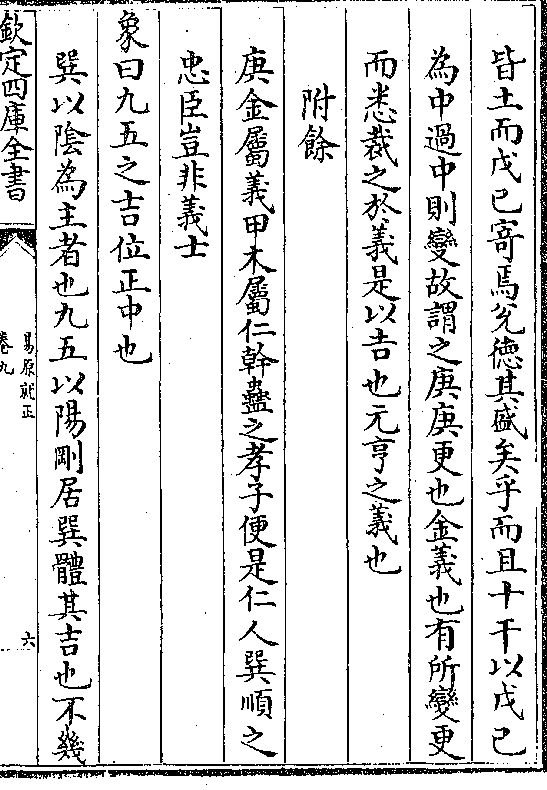 皆土而戊己寄焉兊德其盛矣乎而且十干以戊己
為中過中則變故謂之庚庚更也金義也有所變更
而悉裁之於義是以吉也元亨之義也
附餘
庚金屬義甲木屬仁幹蠱之孝子便是仁人巽順之
忠臣豈非義士
象曰九五之吉位正中也
巽以陰為主者也九五以陽剛居巽體其吉也不幾
欽定四庫全書
易原就正
卷九
六